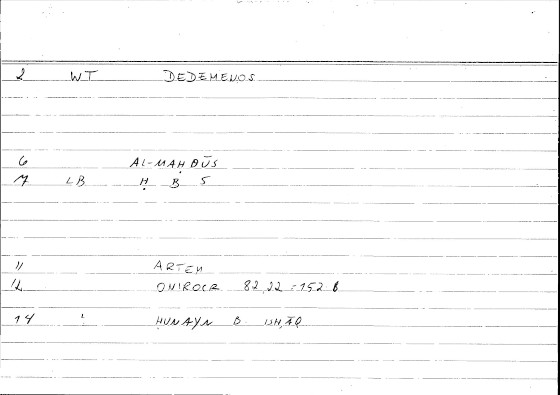 2 WT DEDEMENOS
6 AL-MAḤBŪS
7 LB Ḥ B S
11 ARTEM
12 ONIROCR 82,22 = 152 8
14 ' ḤUNAYN B. ISḤĀQ